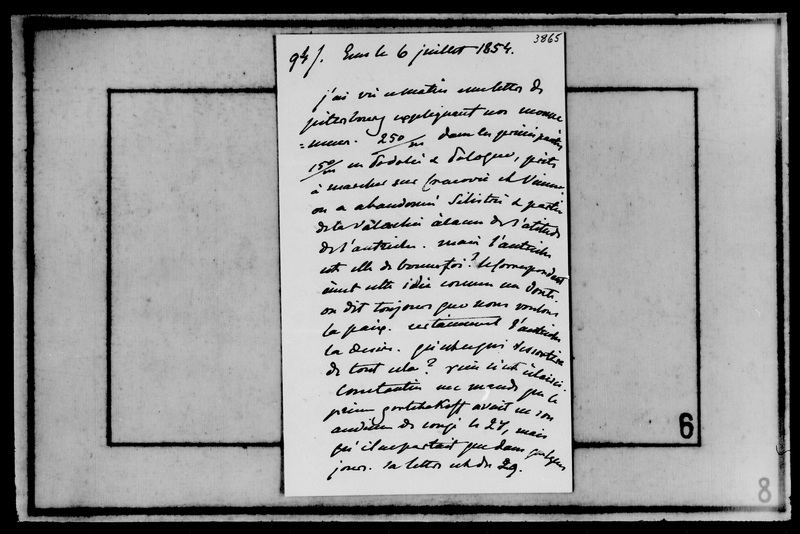 3865
94/. Ems le 6 juillet 1854.
j'ai vu ce matin une lettre de
pétersbourg expliquant nos mouve
=mens. 250/m dans les principautés
150/m en Podolie & Pologne, prêts
à marcher sur Cracovie et Vienne.
on a abandonné Silistrie & partie
de la Valachie à cause de l'attitude
de l'autriche. mais l'autriche
est elle de bonne foi? le correspondant
émet cette idée comme un doute.
on dit toujours que nous voulons
la paix. certainement l'autriche
la desire. qu'est ce qui sortira
de tout cela? rien n'est éclairci.
Constantin me mande que le
prince gortchakoff avait eu son
audience de congé le 27, mais
qu'il ne partait que dans quelques
jours. sa lettre est du 29.
6
8